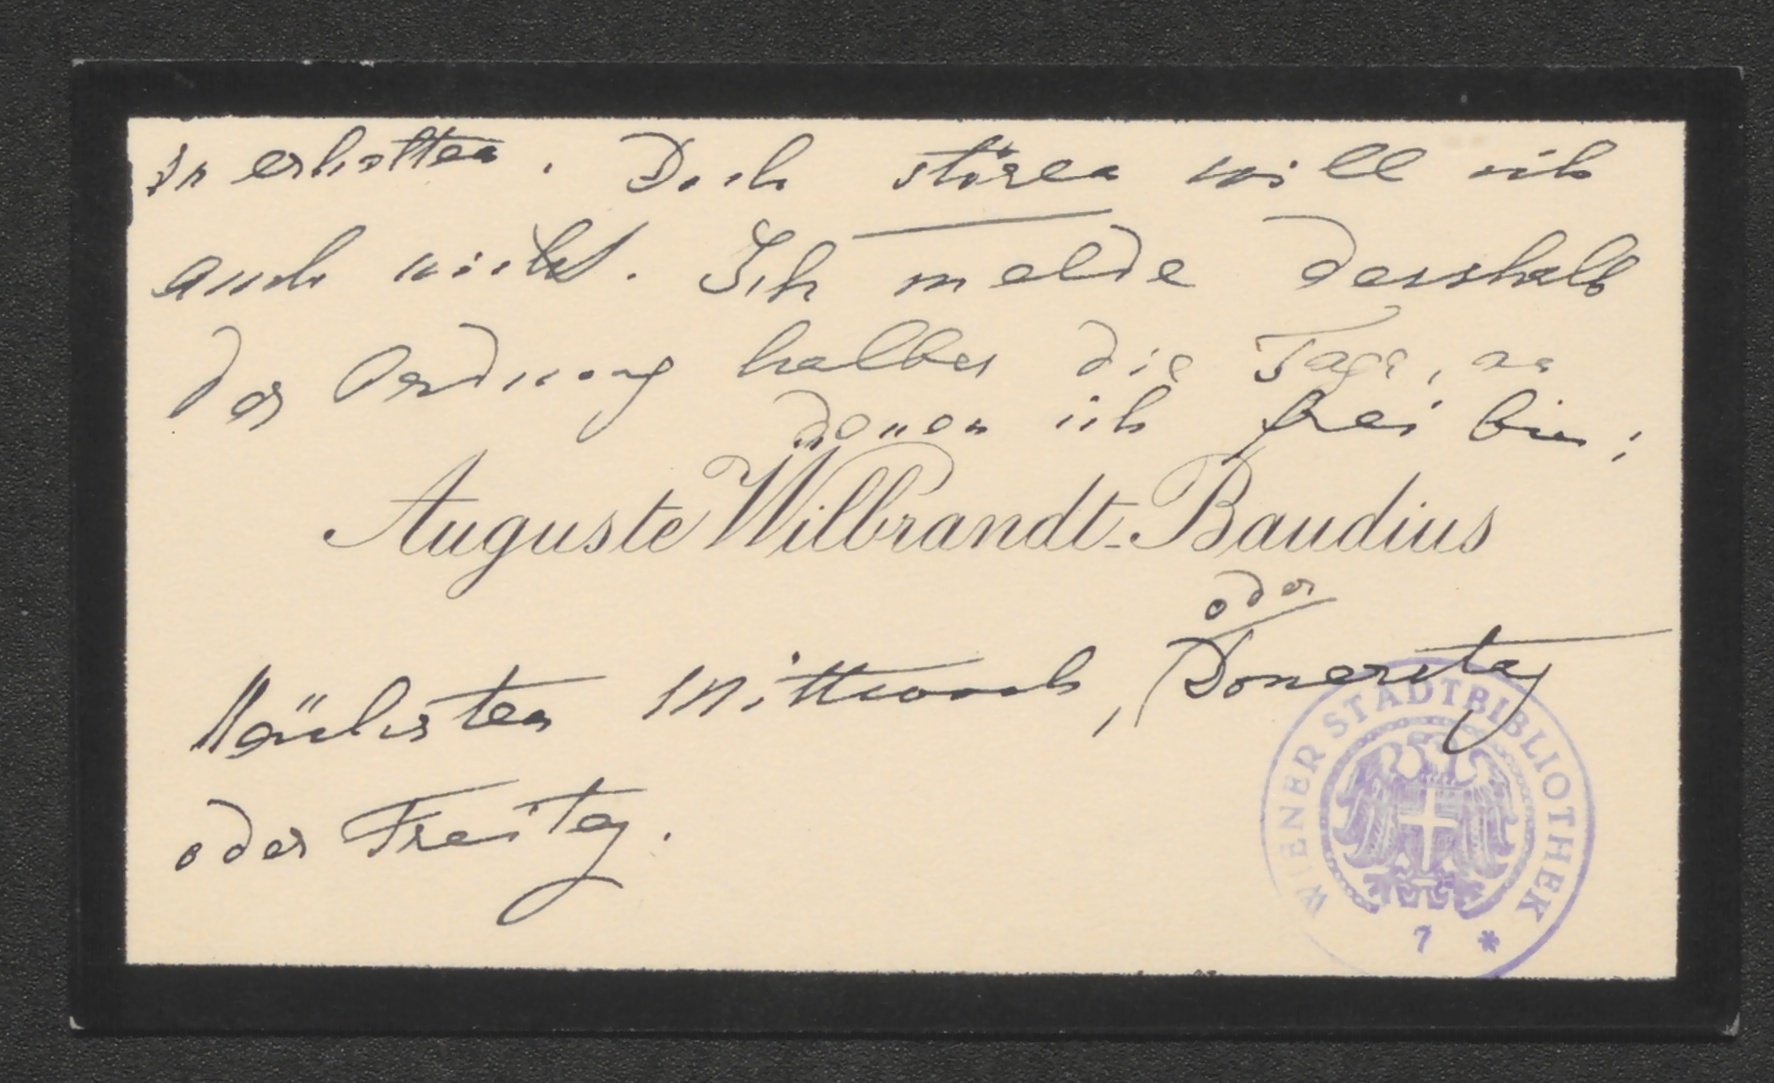 zu erhalten. Doch stören will ich
auch nicht. Ich melde desshalb
der Ordnung halber die Tage, an
denen ich frei bin:
Auguste Wilbrandt-Baudius
oder
Nächsten Mittwoch, Donerstag
oder Freitag.
WIENER STADTBIBLIOTHEK
7 *